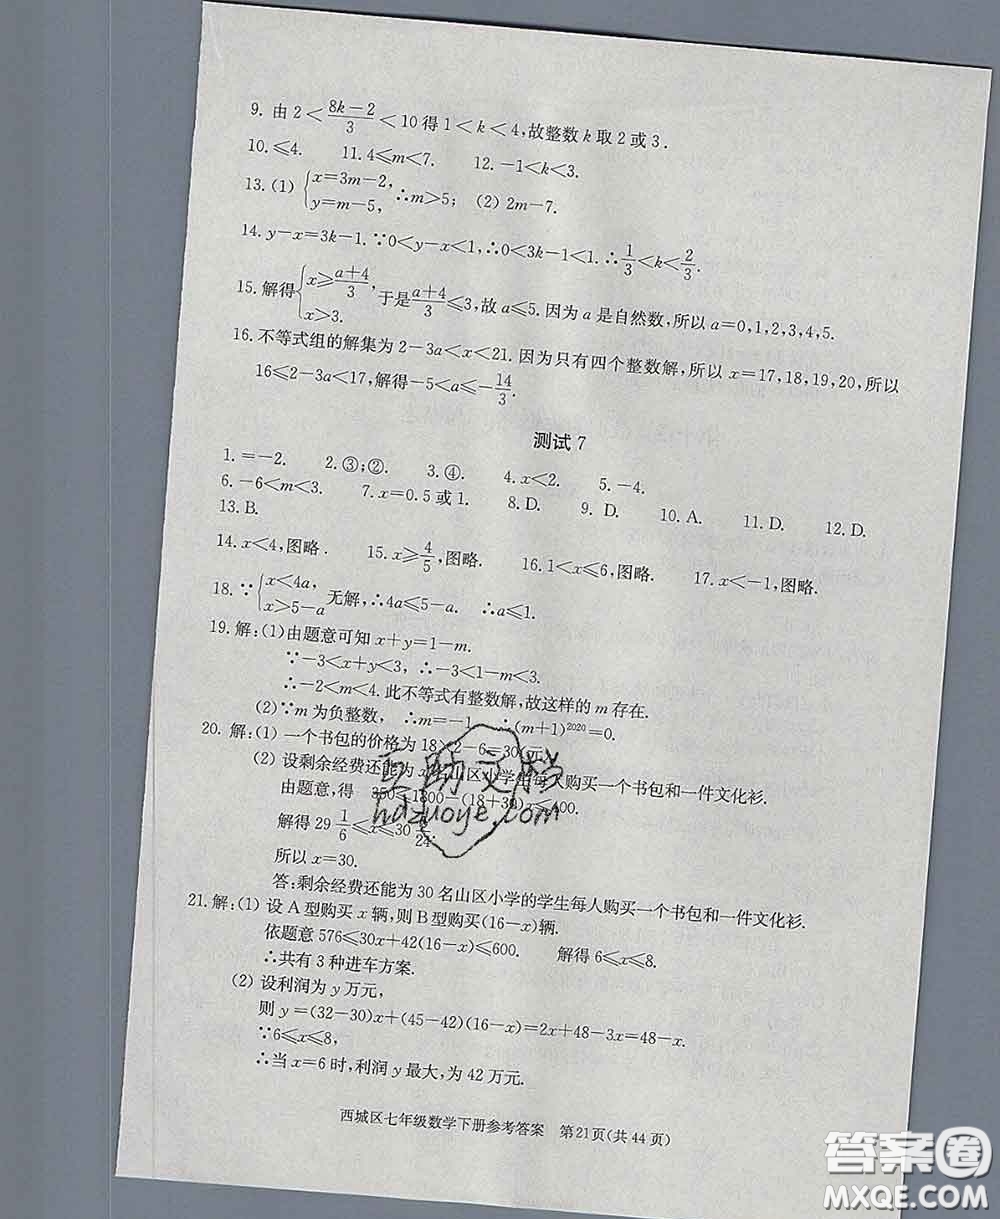 9. 由 2＜(8k－2)/3＜10得 1＜k＜4,故整数 k 取 2 或 3.
10. ≤4. 11. 4≤m＜7. 12. －1＜k＜3.
13. (1) {x=3m－2, y=m－5, ∴m＞5; (2) 2m－7.
14. y－x=3k－1. ∵0＜y－x＜1,∴0＜3k－1＜1. ∴1/3＜k＜2/3.
15. 解得{x≥(a＋4)/3, x＞3. 于是(a＋4)/3≤3,故 a≤5. 因为 a 是自然数,所以 a=0,1,2,3,4,5.
16. 不等式组的解集为 2－3a＜x＜21. 因为只有四个整数解,所以 x=17,18,19,20,所以
16≤2－3a＜17,解得－5＜a≤－14/3.
测试 7
1. =－2. 2. ③;②. 3. ④. 4. x＜2. 5. －4.
6. －6＜m＜3. 7. x=0.5 或 1. 8. D. 9. D. 10. A. 11. D. 12. D.
13. B.
14. x＜4,图略. 15. x≥4/5,图略. 16. 1＜x≤6,图略. 17. x＜－1,图略.
18. ∵{x＜4a, x＞5－a 无解,∴4a≤5－a. ∴a≤1.
19. 解:(1)由题意可知 x＋y=1－m.
∵－3＜x＋y＜3, ∴－3＜1－m＜3.
∴－2＜m＜4. 此不等式有整数解,故这样的 m 存在.
(2)∵m 为负整数, ∴m=－1 ∴(m＋1)²⁰²⁰=0.
20. 解:(1) 一个书包的价格为 18×2－6=30(元)
(2) 设剩余经费还能为 x 名山区小学生每人购买一个书包和一件文化衫.
由题意,得 350≤1800－(18＋30)x≤400.
解得 29 1/6≤x≤30 /24.
所以 x=30.
答:剩余经费还能为 30 名山区小学的学生每人购买一个书包和一件文化衫.
21. 解:(1) 设 A 型购买 x 辆,则 B 型购买(16－x)辆.
依题意 576≤30x＋42(16－x)≤600. 解得 6≤x≤8.
∴共有 3 种进车方案.
(2) 设利润为 y 万元,
则 y=(32－30)x＋(45－42)(16－x)=2x＋48－3x=48－x.
∵6≤x≤8,
∴当 x=6 时,利润 y 最大,为 42 万元.
西城区七年级数学下册参考答案 第21页(共 44 页)
互助文档
hdzuoye.com
答案圈
MXQE.COM